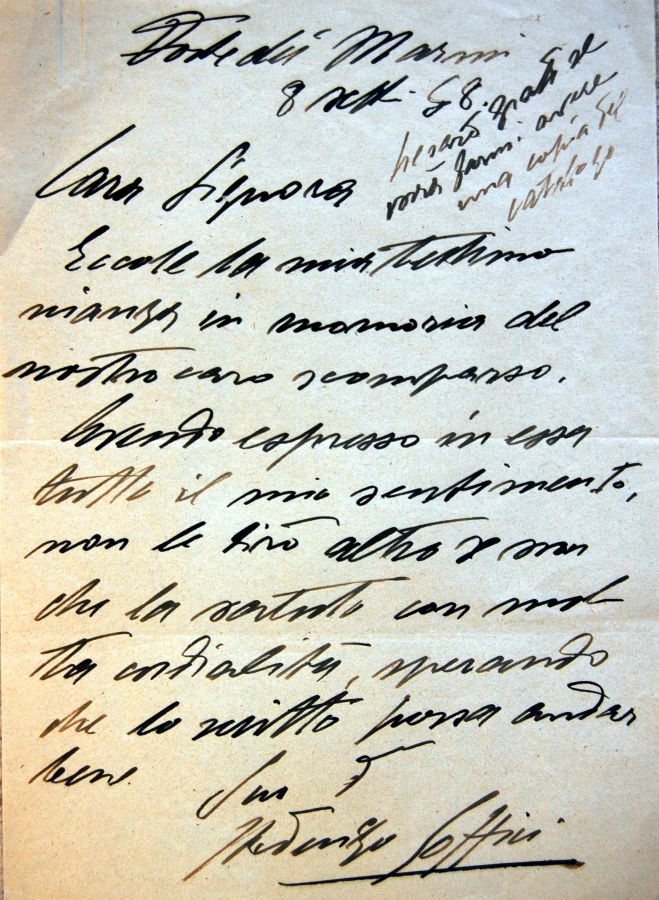 Forte dei Marmi
8 sett. 58.
Le sarò grato se
vorrà farmi avere
una copia del
catalogo
Cara Signora
Eccole la mia testimo
nianza in memoria del
nostro caro scomparso.
Avendo espresso in essa
tutto il mio sentimento,
non le dirò altro se non
che la saluto con mol
ta cordialità, sperando
che lo scritto possa andar
bene.
Suo
Ardengo Soffici